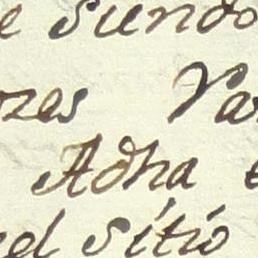 e siendo
zes Va
Adha e
el sitio